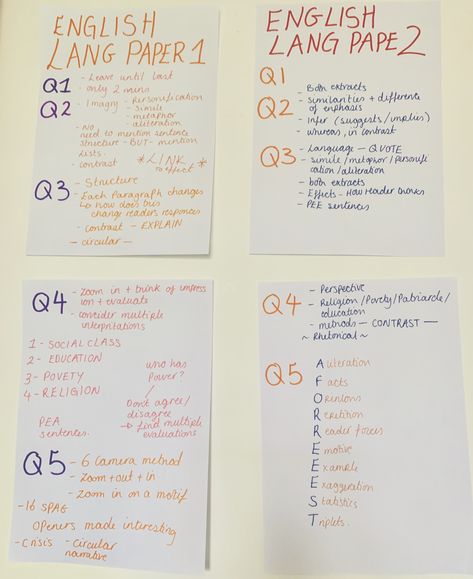 ENGLISH
LANG PAPER 1
Q1
- Leave until last
- only 2 mins
Q2
- Imagry - Personification
- Simile
- metaphor
- aliteration
- No
need to mention sentence
structure - BUT - mention
Lists.
- contrast
* LINK *
to effect
Q3
- Structure
- Each Paragraph changes
↳ how does this
change readers responses
- contrast - EXPLAIN
- circular -
ENGLISH
LANG PAPE 2
Q1
- Both extracts
Q2
- similarities + difference
of emphases
- Infer (suggests/implies)
- whereas, in contrast
Q3
- Language - QUOTE
- simile/metaphor/personifi
cation/aliteration
- both extracts
- Effects - How reader thinks
- PEE sentences
Q4
- zoom in + think of impress
ion + evaluate
- consider multiple
interpritations
1 - SOCIAL CLASS
2 - EDUCATION
3 - POVETY
4 - RELIGION
who has
Power?
/
Don't agree/
disagree
→ find multiple
evaluations
PEA
sentences.
Q5
- 6 Camera method
- Zoom + out + in
- Zoom in on a motif
- 16 SPAG
openers made interesting
- Crisis - Circular
narrative
Q4
- Perspective
- Religion/Povety/Patriarcle/
education
- methods - CONTRAST -
~ Rhetorical ~
Q5
Aliteration
Facts
Opinions
Repetition
Reader focus
Emotive
Example
Exaggeration
Statistics
Triplets.